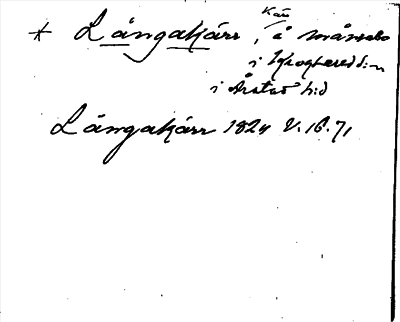 * Långakärr, kärr å Månsabo
i Krogsered s:n
i Årstad h:d
Långakärr 1824 V. 16. 71